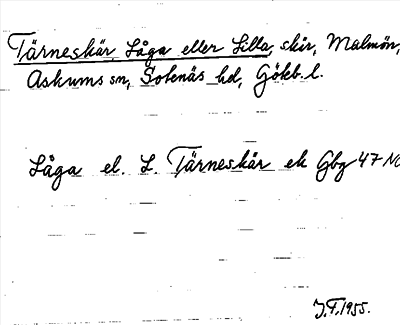 Tärneskär, Låga eller Lilla, skär, Malmön,
Askums sn, Sotenäs hd, Göteb. l.
Låga el. L. Tärneskär ek Gbg 47 NO
J.F. 1955.